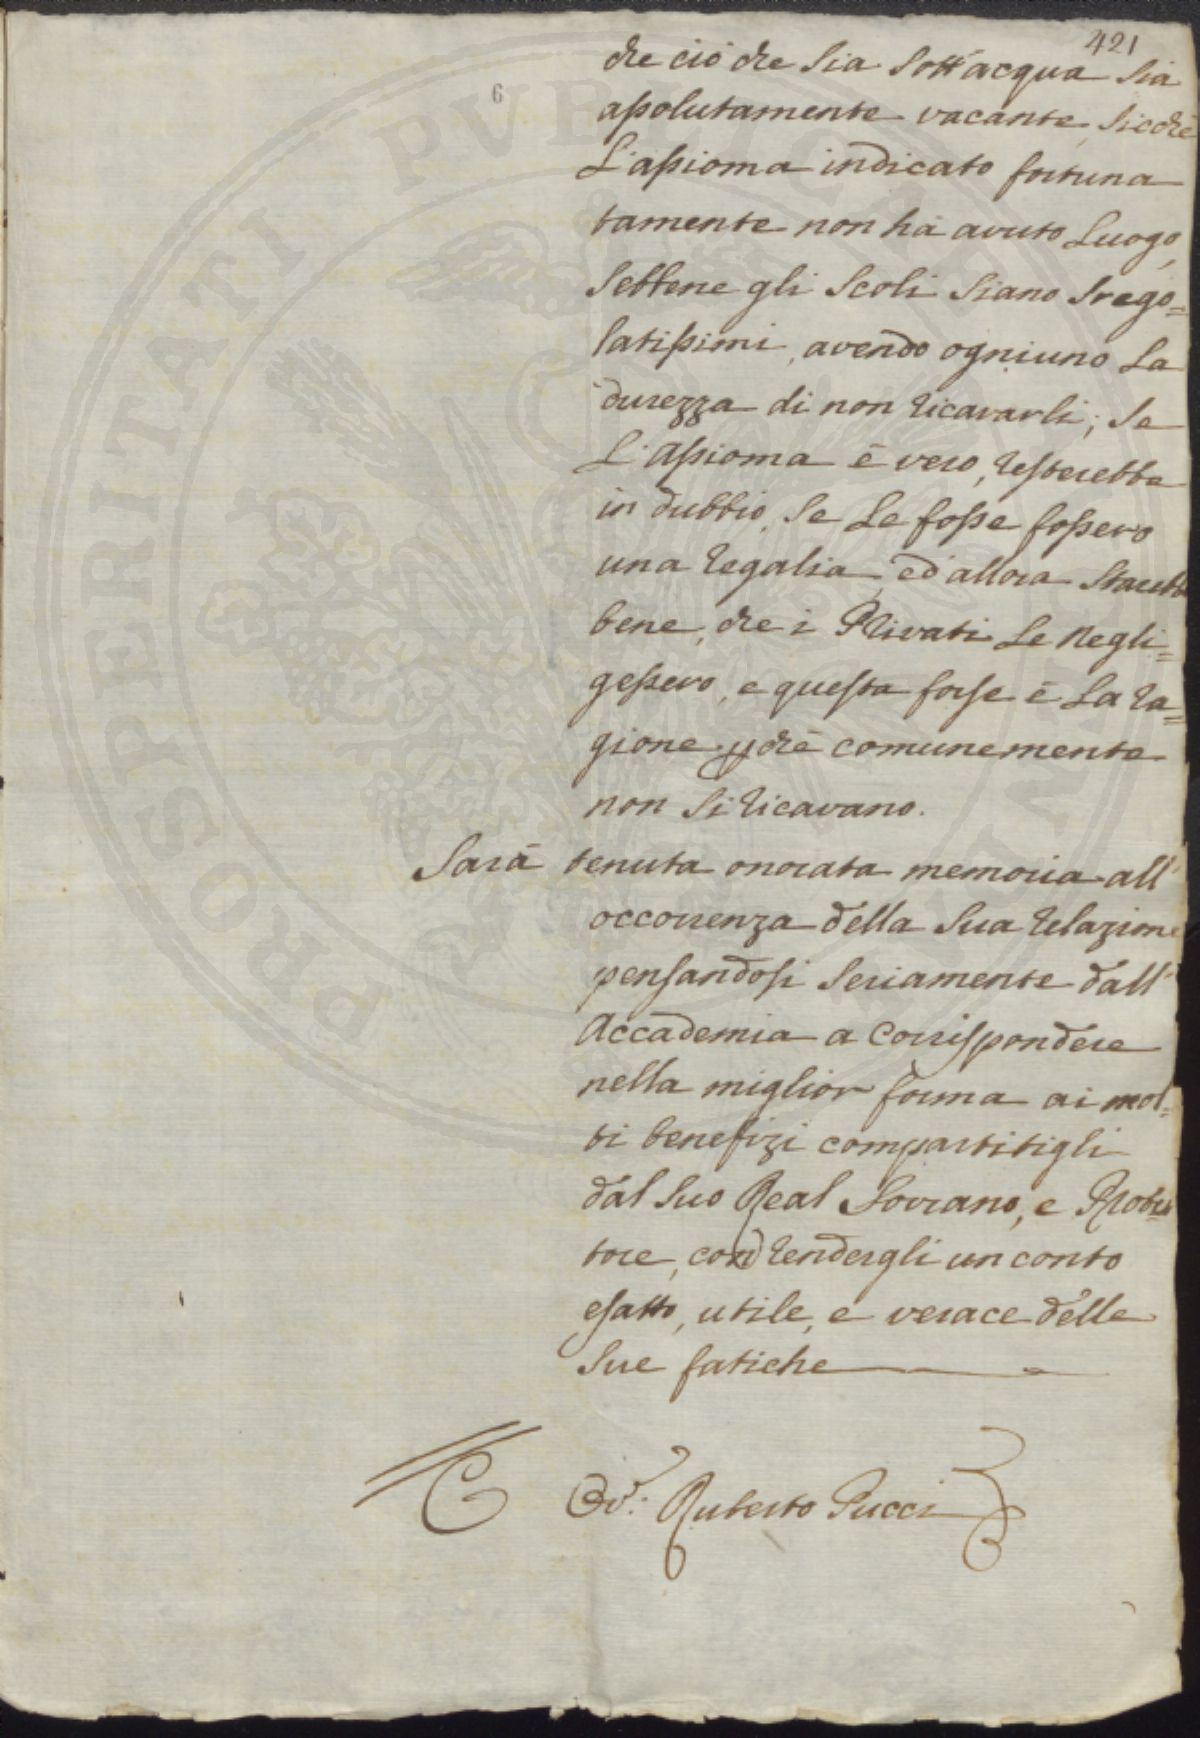 421
6
che ciò che sia sott'acqua sia
assolutamente vacante, sicchè
L'assioma indicato fortuna
tamente non hà avuto Luogo,
sebbene gli scoli siano srego=
latissimi, avendo ogniuno la
durezza di non ricavarli; se
L'Assioma è vero, resterebbe
in dubbio, se le fosse fossero
una regalia, ed'allora starebbe
bene, che i Privati le negli=
gessero, e questa forse è la ra=
gione perchè comunemente
non si ricavano.
Sarà tenuta onorata memoria all'
occorrenza della sua relazione
pensandosi seriamente dall'
Accademia a corrispondere
nella miglior forma ai mol=
ti benefizi compartitigli
dal suo Real Sovrano, e
tore, con rendergli un conto
esatto, utile, e verace delle
sue fatiche
Cav.r Ruberto Pucci
PROSPERITATI PVBLICAE